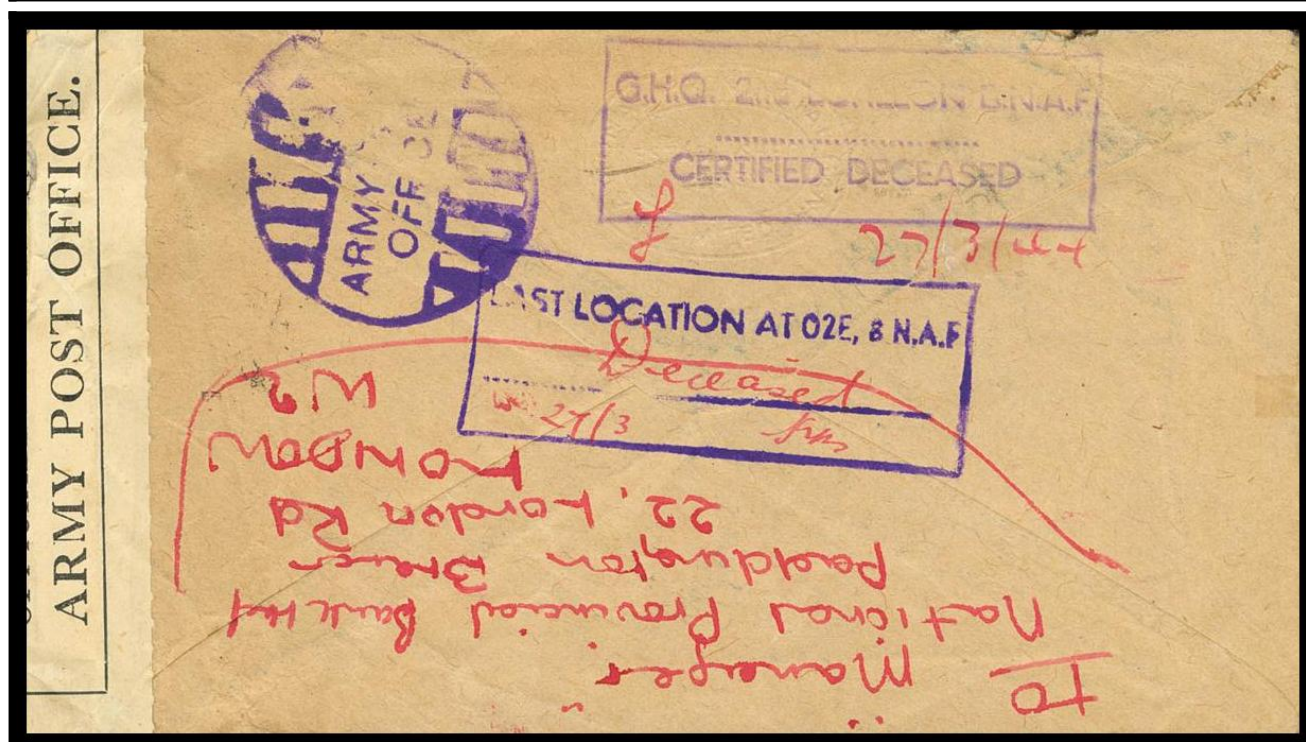 ARMY POST OFFICE.
ARMY
OFF CE
G.H.Q. 2nd ECHELON B.N.A.F
CERTIFIED DECEASED
27/3/44
LAST LOCATION AT 02E, B.N.A.F
Deceased
27/3
To Manager
National Provincial Bank Ltd
Paddington Branch
22, London Rd
LONDON
W2